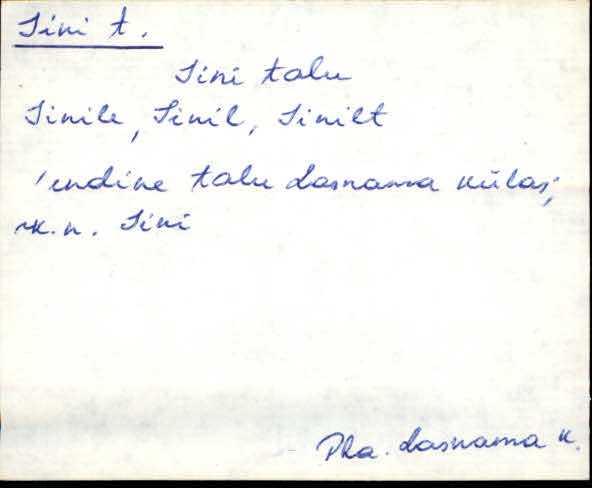 Sini t.
Sini talu
Sinile, Sinil, Sinilt
'endine talu Lasnama külas,
rk. n. Sini
Pha. Lasnama k.